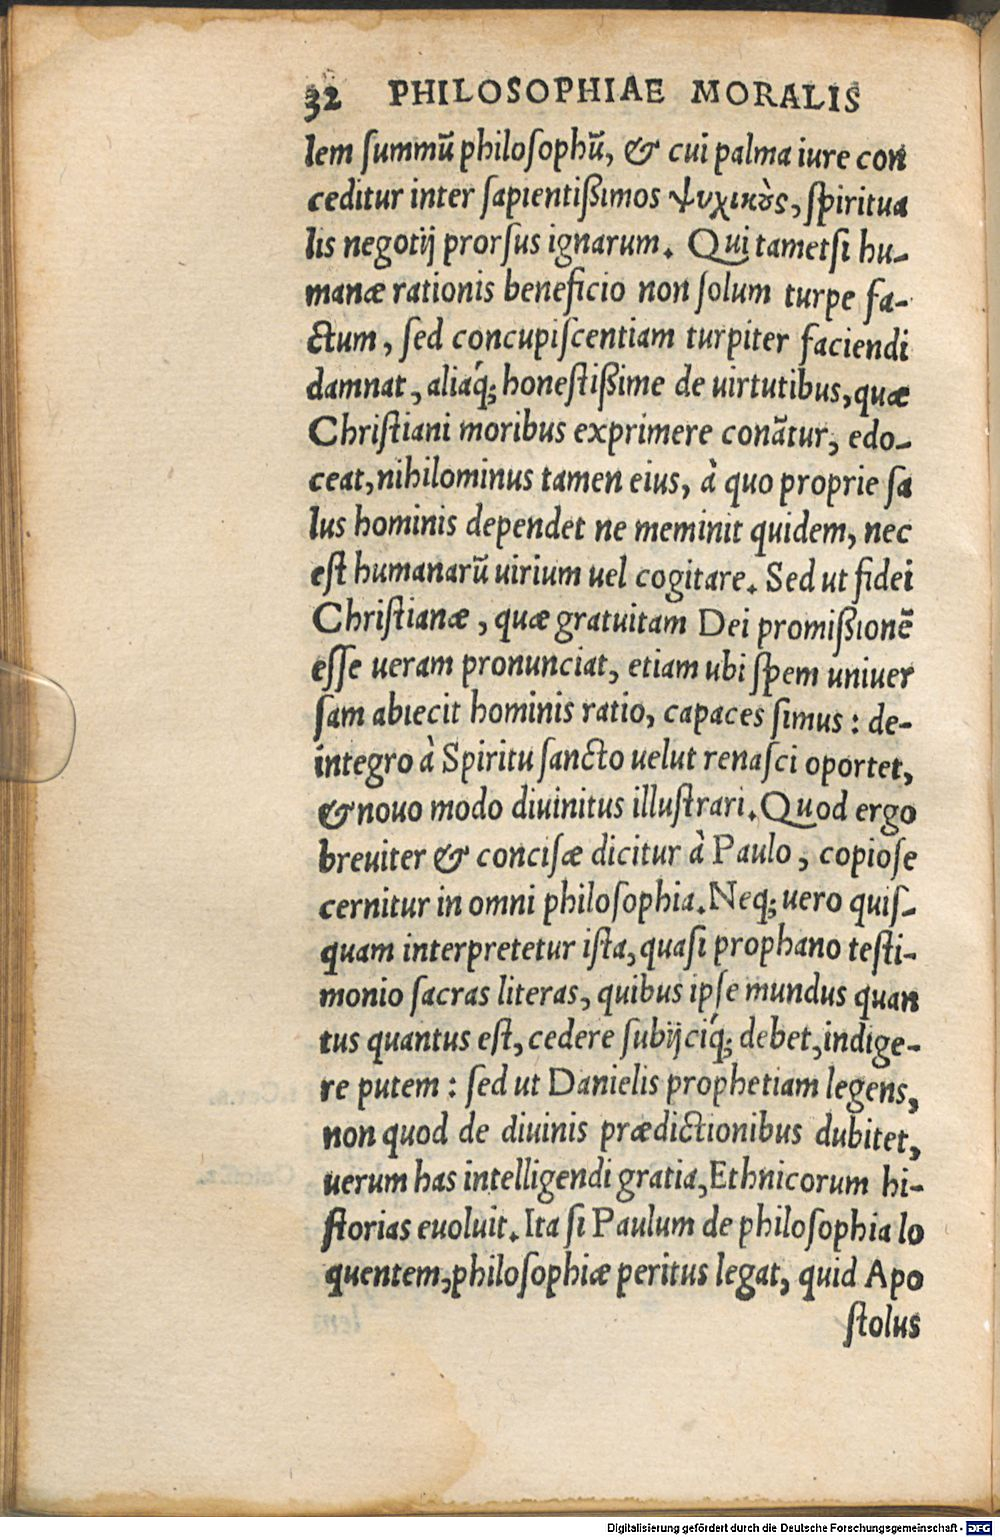 32 PHILOSOPHIAE MORALIS
lem ſummū philoſophū, & cui palma iure con
ceditur inter ſapientiſsimos ψυχικὸς, ſpiritua
lis negotij prorſus ignarum. Qui tametſi hu-
manæ rationis beneficio non ſolum turpe fa-
ctum, ſed concupiſcentiam turpiter faciendi
damnat, aliaq́; honeſtißime de uirtutibus, quæ
Chriſtiani moribus exprimere conãtur, edo-
ceat, nihilominus tamen eius, à quo proprie ſa
lus hominis dependet ne meminit quidem, nec
eſt humanarū uirium uel cogitare. Sed ut fidei
Chriſtianæ, quæ gratuitam Dei promißionē
eſſe ueram pronunciat, etiam ubi ſpem uniuer
ſam abiecit hominis ratio, capaces ſimus: de-
integro à Spiritu ſancto uelut renaſci oportet,
& nouo modo diuinitus illuſtrari. Quod ergo
breuiter & conciſæ dicitur à Paulo, copioſe
cernitur in omni philoſophia. Neq; uero quiſ-
quam interpretetur iſta, quaſi prophano teſti-
monio ſacras literas, quibus ipſe mundus quan
tus quantus eſt, cedere ſubijciq́; debet, indige-
re putem: ſed ut Danielis prophetiam legens,
non quod de diuinis prædictionibus dubitet,
uerum has intelligendi gratia, Ethnicorum hi-
ſtorias euoluit. Ita ſi Paulum de philoſophia lo
quentem, philoſophiæ peritus legat, quid Apo
ſtolus
Digitalisierung gefördert durch die Deutsche Forschungsgemeinschaft - DFG